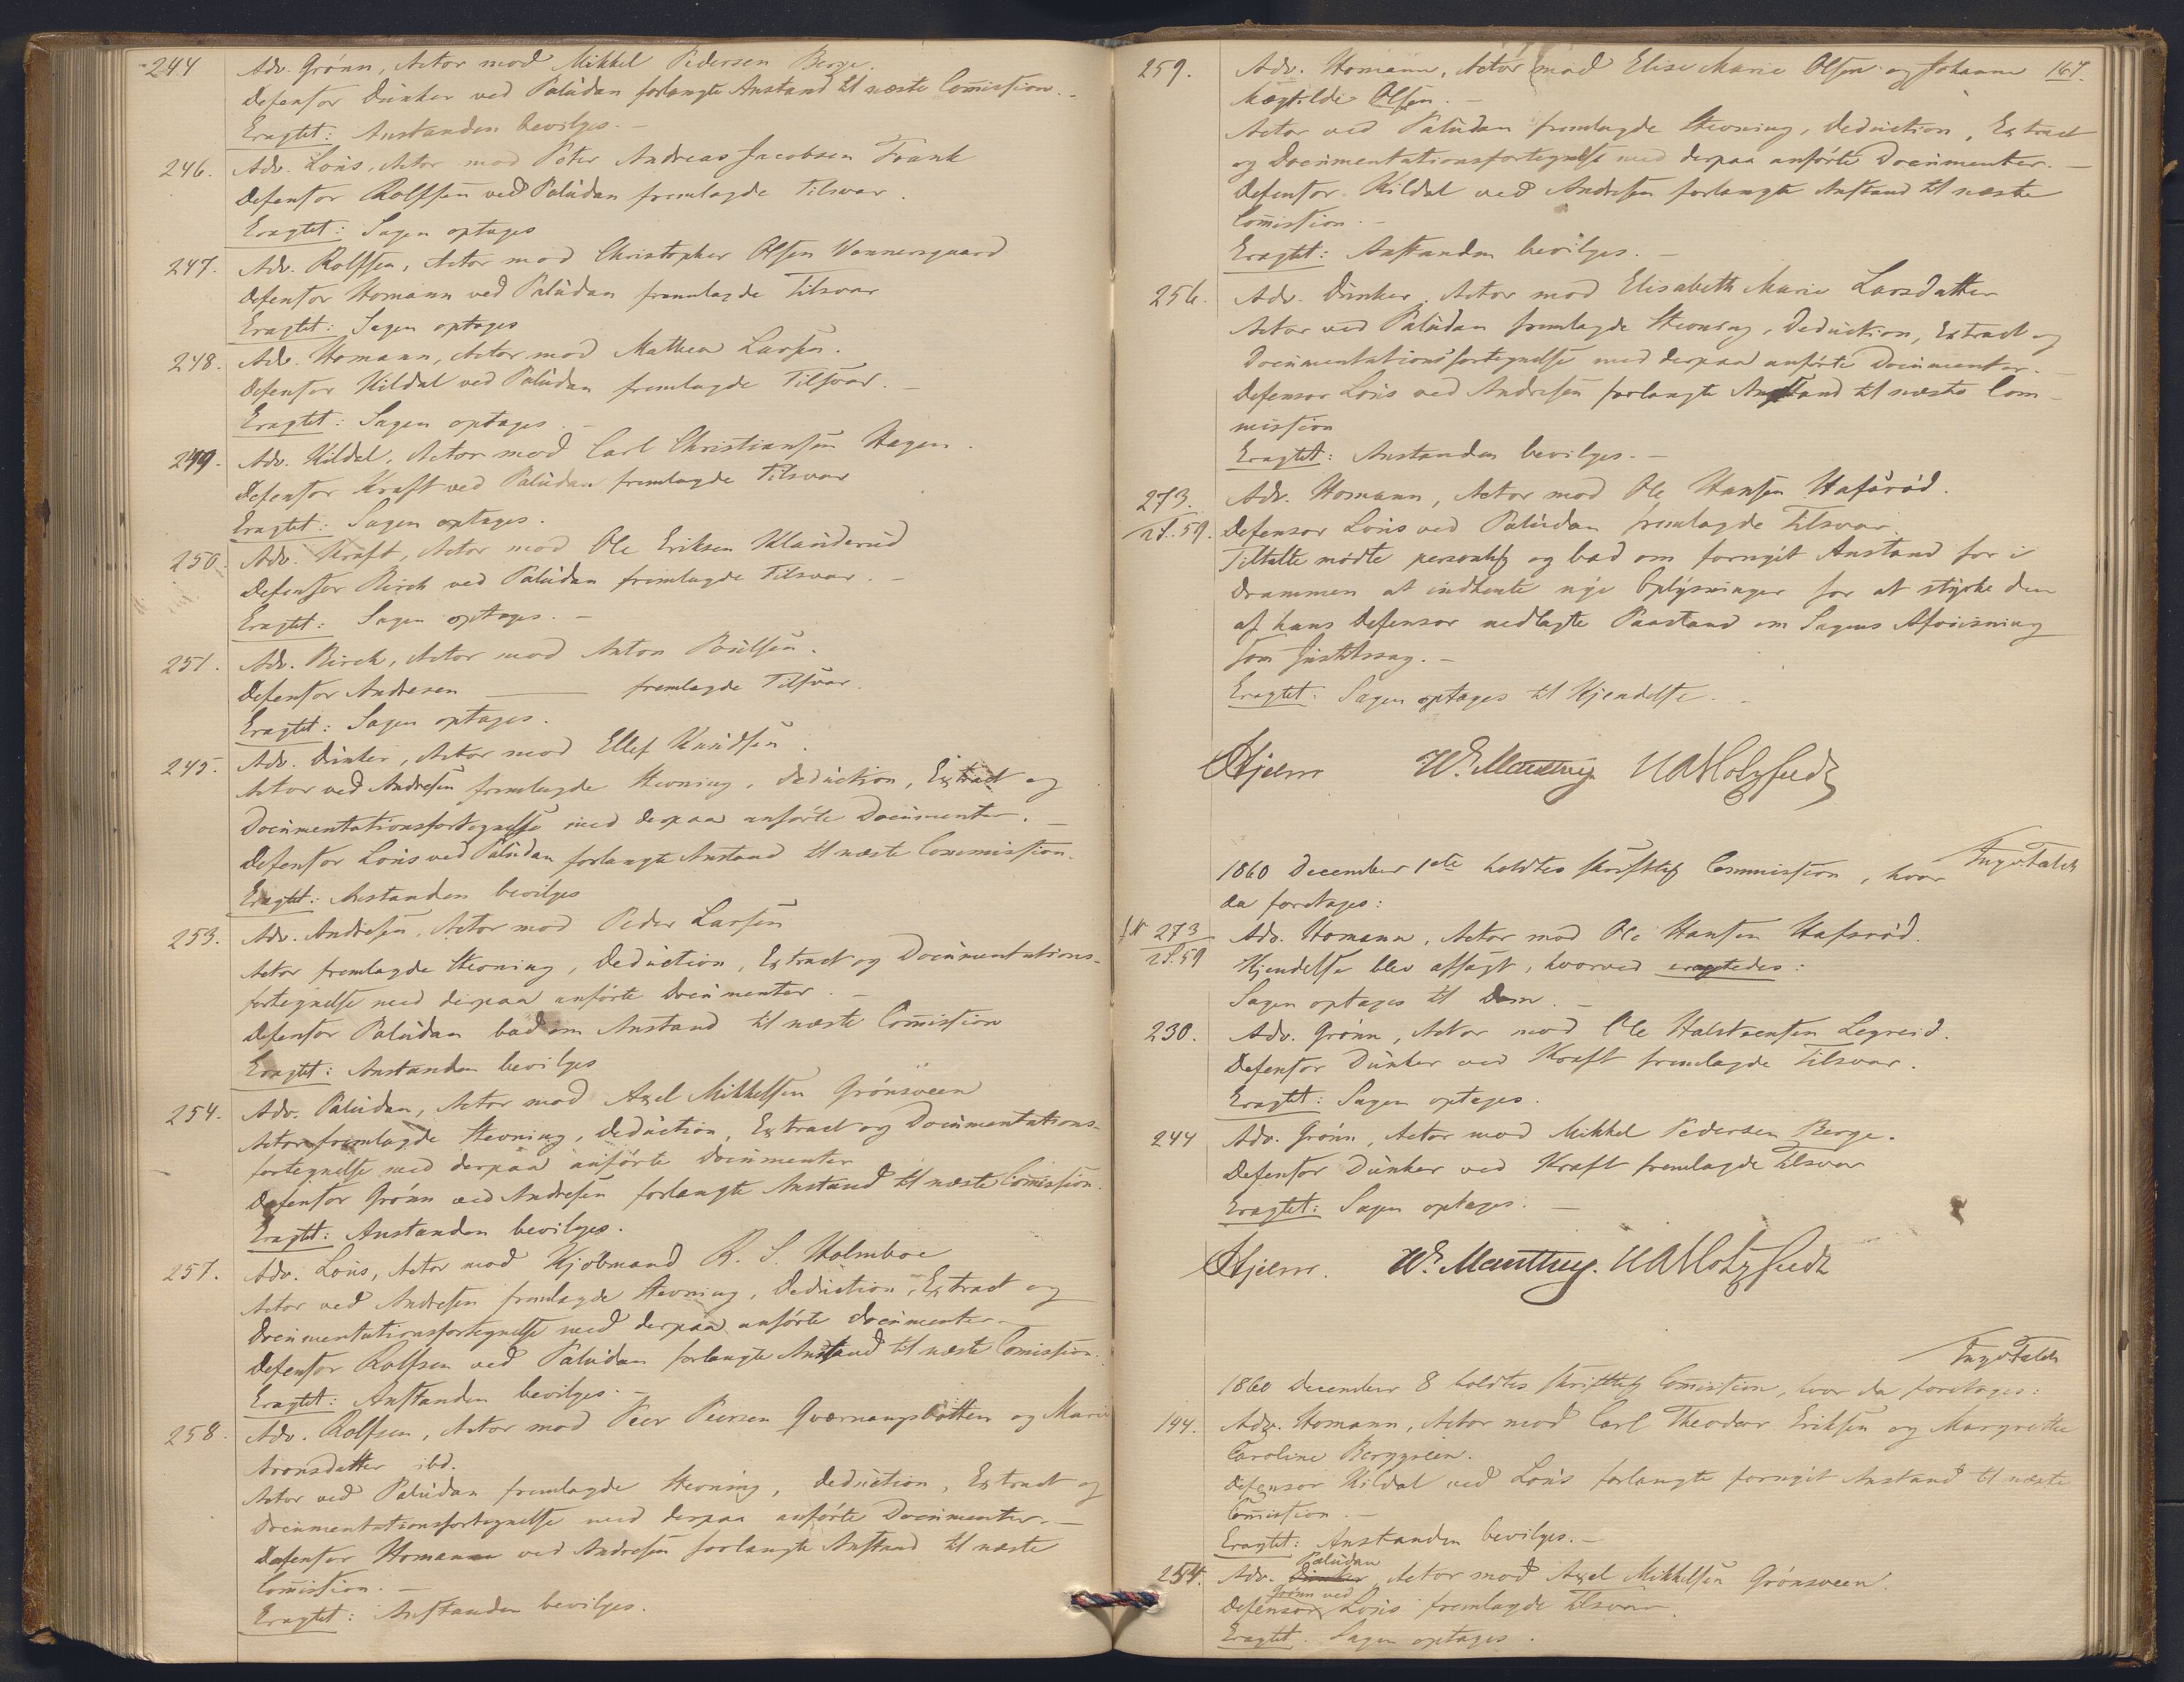 244 Adv. Grönn, Actor mod Mikkel Pedersen Berge.
Defensor Dunker ved Paludan forlangte Anstand til næste Comission.
Eragtet: Anstanden bevilges.
246. Adv. Lous, Actor mod Peter Andreas Jacobsen Frank
Defensor Rolfsen ved Paludan fremlagde Tilsvar.
Eragtet: Sagen optages
247. Adv. Rolfsen, Actor mod Christopher Olsen Vennersgaard
Defensor Homann ved Paludan fremlagde Tilsvar
Eragtet: Sagen optages
248. Adv. Homann, Actor mod Mathea Larsen.
Defensor Kildal ved Paludan fremlagde Tilsvar.
Eragtet: Sagen optages.
249. Adv. Kildal, Actor mod Carl Christiansen Hagen.
Defensor Kraft ved Paludan fremlagde Tilsvar
Eragtet: Sagen optages.
250. Adv. Kraft, Actor mod Ole Eriksen Klanderud
Defensor Birch ved Paludan fremlagde Tilsvar.
Eragtet: Sagen optages.
251. Adv. Birch, Actor mod Anton Poulsen.
Defensor Andresen ——— fremlagde Tilsvar.
Eragtet: Sagen optages.
245. Adv. Dunker, Actor mod Ellef Knudsen.
Actor ved Andresen fremlagde Stevning, Deduction, Extract og
Documentationsfortegnelse med derpaa anförte Documenter.
Defensor Lous ved Paludan forlangte Anstand til næste Commission.
Eragtet: Anstanden bevilges
253. Adv. Andresen, Actor mod Peder Larsen
Actor fremlagde Stevning, Deduction, Extract og Documentations-
fortegnelse med derpaa anförte Documenter.
Defensor Paludan bad om Anstand til næste Comission
Eragtet: Anstanden bevilges
254. Adv. Paludan, Actor mod Axel Mikkelsen Grönsveen
Actor fremlagde Stevning, Deduction, Extract og Documentations-
fortegnelse med derpaa anförte Documenter
Defensor Grönn ved Andresen forlangte Anstand til næste Comission.
Eragtet: Anstanden bevilges.
257. Adv. Lous, Actor mod Kjöbmand R. S. Holmboe
Actor ved Andresen fremlagde Stevning, Deduction, Extract og
Documentationsfortegnelse med derpaa anförte Documenter
Defensor Rolfsen ved Paludan forlangte Anstand til næste Comission.
Eragtet: Anstanden bevilges.
258. Adv. Rolfsen, Actor mod Peer Peersen Qvænangsbotten og Marie
Aronsdatter ibd.
Actor ved Paludan fremlagde Stevning, Deduction, Extract og
Documentationsfortegnelse med derpaa anförte Documenter.
Defensor Homann ved Andresen forlangte Anstand til næste
Comission.
Eragtet: Anstanden bevilges.
259. Adv. Homann, Actor mod Elise Marie Olsen og Johanne 167.
Mægtilde Olsen.
Actor ved Paludan fremlagde Stevning, Deduction, Extract
og Documentationsfortegnelse med derpaa anförte Documenter.
Defensor Kildal ved Andresen forlangte Anstand til næste
Comission.
Eragtet: Anstanden bevilges.
256. Adv. Dunker, Actor mod Elisabeth Marie Larsdatter
Actor ved Paludan fremlagde Stevning, Deduction, Extract og
Documentationsfortegnelse med derpaa anförte Documenter.
Defensor Lous ved Andresen forlangte Anstand til næste Com-
mission
Eragtet: Anstanden bevilges.
273. Adv. Homann, Actor mod Ole Hansen Hafsröd.
59. Defensor Lous ved Paludan fremlagde Tilsvar.
Tiltalte mödte personlig og bad om fornyet Anstand for i
Drammen at indhente nye Oplysninger for at styrke den
af hans Defensor nedlagte Paastand om Sagens Afviisning
som Justitssag.
Eragtet: Sagen optages til Kjendelse.
Hjelm
1860 December 1ste holdtes skriftlig Commission, hvor
da foretages:
273 Adv. Homann, Actor mod Ole Hansen Hafsröd.
59 Kjendelse blev afsagt, hvorved eragtedes:
Sagen optages til Dom.
230. Adv. Grönn, Actor mod Ole Halstensen Legreid.
Defensor Dunker ved Kraft fremlagde Tilsvar.
Eragtet: Sagen optages.
244 Adv. Grönn, Actor mod Mikkel Pedersen Berge.
Defensor Dunker ved Kraft fremlagde Tilsvar
Eragtet: Sagen optages.
Hjelm.
1860 December 8 holdtes skriftlig Comission, hvor da foretages:
194. Adv. Homann, Actor mod Carl Theodor Eriksen og Margrethe
Caroline Berggreen.
Defensor Kildal ved Lous forlangte fornyet Anstand til næste
Comission.
Eragtet: Anstanden bevilges.
Paludan
254. Adv. Dunker, Actor mod Axel Mikkelsen Grönsveen.
Grönn ved
Defensor Lous fremlagde Tilsvar.
Eragtet. Sagen optages.